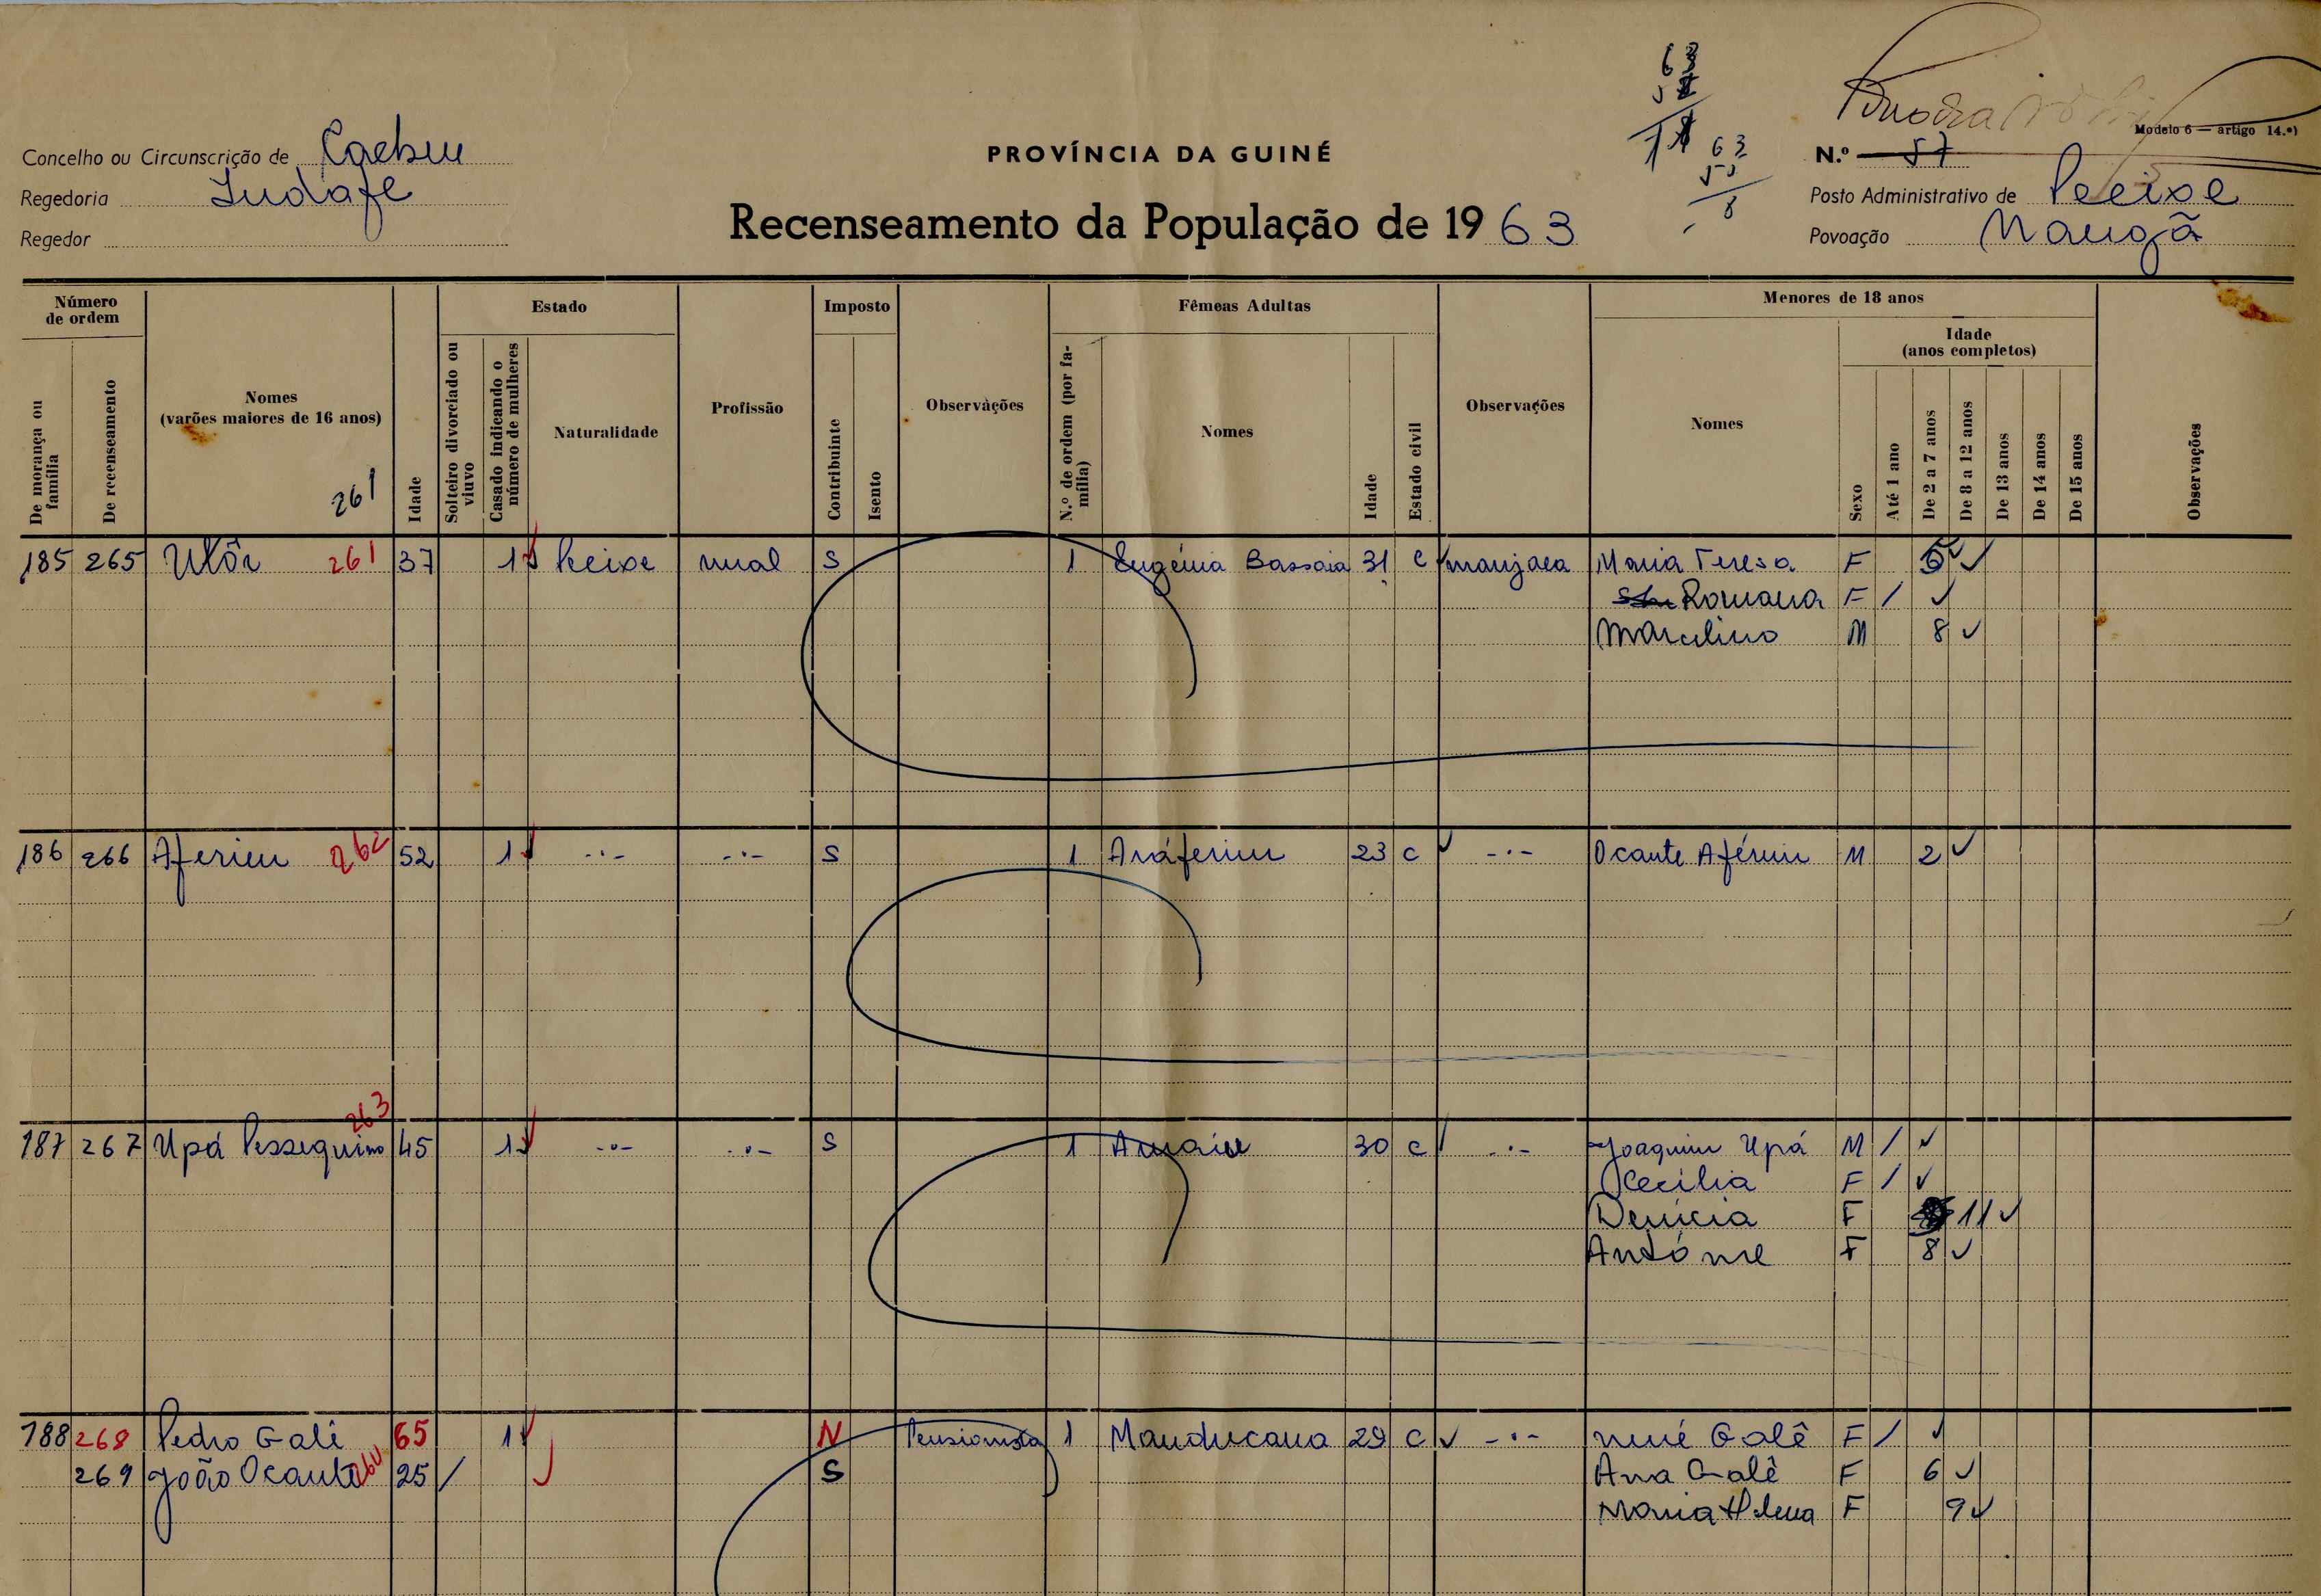 63
Modelo 6 — artigo 14.º)
Concelho ou Circunscrição de Caebu
PROVÍNCIA DA GUINÉ
63
N.º 57
Regedoria Indafe
Posto Administrativo de Pecixe
Recenseamento da População de 1963
8
Regedor
Povoação Nangã
Número de ordem
Estado
Imposto
Fêmeas Adultas
Menores de 18 anos
Idade (anos completos)
De morança ou família
De recenseamento
Nomes (varões maiores de 16 anos)
261
Idade
Solteiro divorciado ou viuvo
Casado indicando o número de mulheres
Naturalidade
Profissão
Contribuinte
Isento
Observações
N.º de ordem (por família)
Nomes
Idade
Estado civil
Observações
Nomes
Sexo
Até 1 ano
De 2 a 7 anos
De 8 a 12 anos
De 13 anos
De 14 anos
De 15 anos
Observações
185 265 Ulôn 261 37 1 Peixe rural S 1 Eugénia Bassaia 31 C manjaca Maria Teresa F 6
Romana F /
Marculino M 8
186 266 Aferim 262 52 1 -·- -·- S 1 Anáferim 23 C -·- Ocante Aférim M 2
263
187 267 Upá Pessequino 45 1 -·- -·- S 1 Amaiu 30 C -·- Joaquim Upá M /
Cecilia F /
Denicia F 11
Antóne F 8
188 268 Pedro Galé 65 1 N Pensionista 1 Manducana 29 C -·- nené Galê F /
269 João Ocante 264 25 / S Ana Galê F 6
Maria Helena F 9